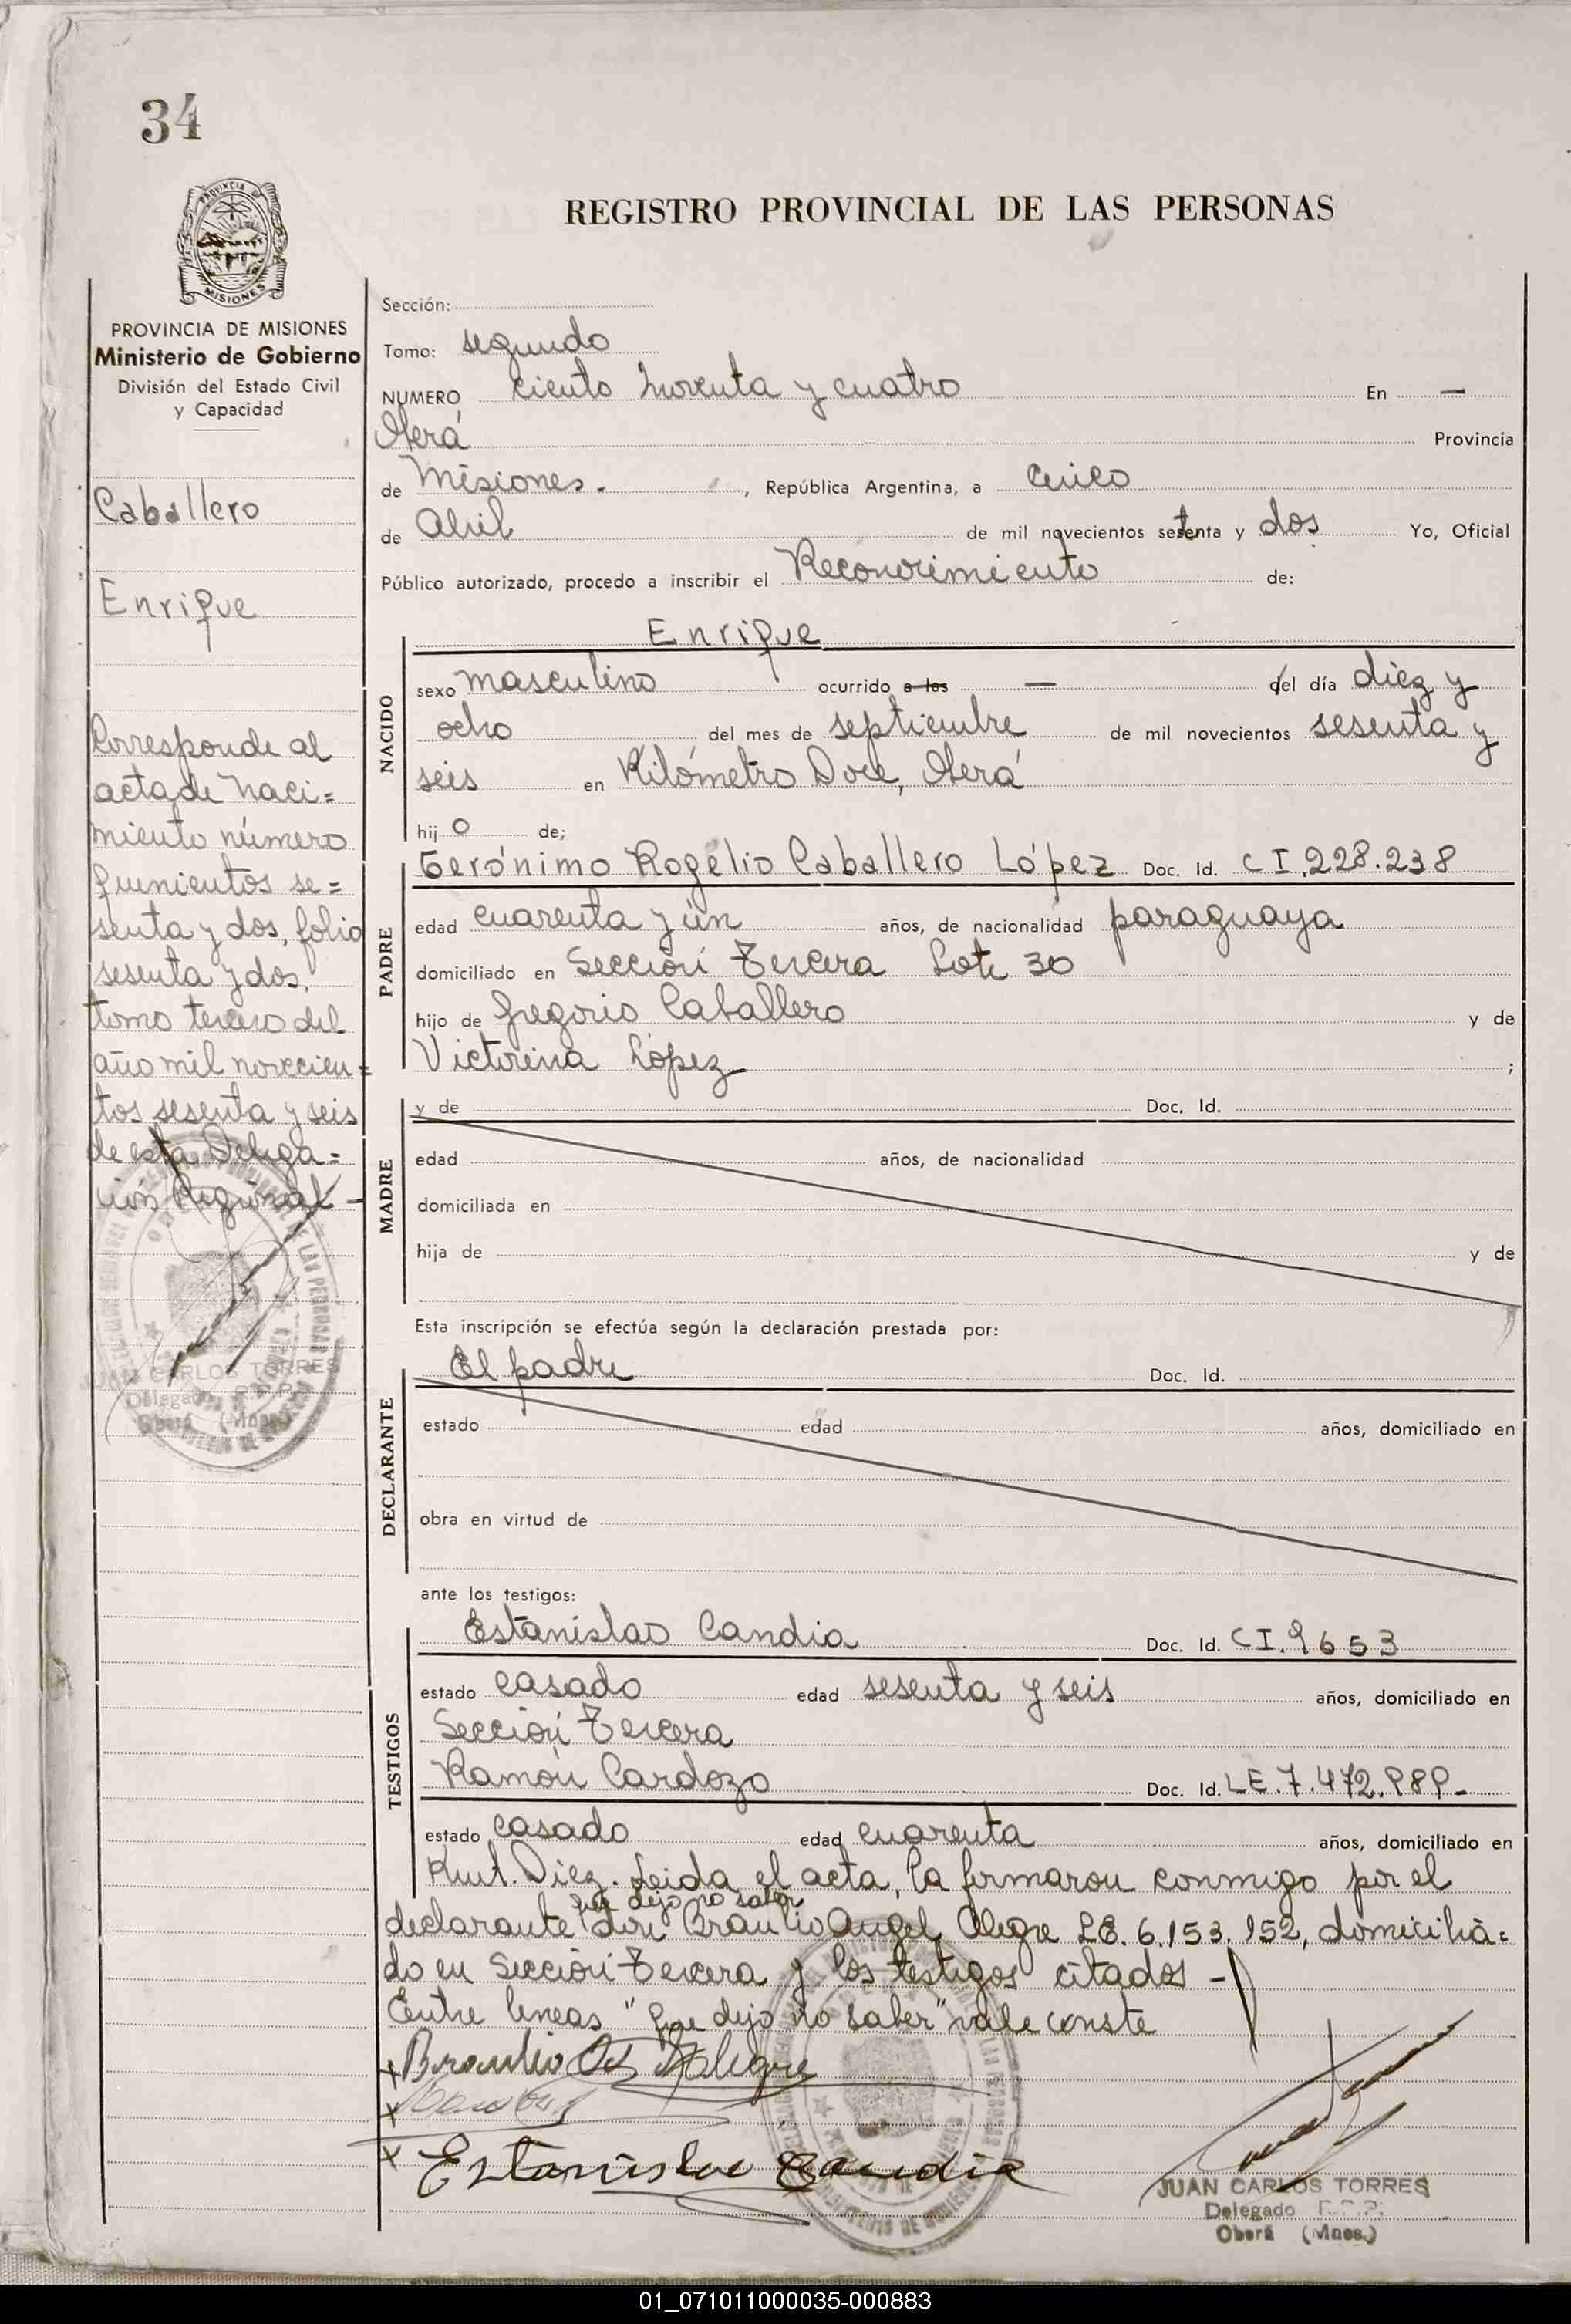 34
PROVINCIA DE
MISIONES
REGISTRO PROVINCIAL DE LAS PERSONAS
PROVINCIA DE MISIONES
Ministerio de Gobierno
División del Estado Civil
y Capacidad
Caballero
Enrique
Corresponde al
acta de naci=
miento número
quinientos se=
senta y dos, folio
sesenta y dos,
tomo tercero del
año mil novecien=
tos sesenta y seis
de esta Delega=
ción Regional -
JUAN CARLOS TORRES
Delegado R.P.P.
Oberá (Mnes.)
Sección:
Tomo: segundo
NUMERO ciento noventa y cuatro En —
Oberá Provincia
de Misiones. , República Argentina, a cinco
de Abril de mil novecientos setenta y dos Yo, Oficial
Público autorizado, procedo a inscribir el Reconocimiento de:
NACIDO
Enrique
sexo masculino ocurrido a las — del día diez y
ocho del mes de septiembre de mil novecientos sesenta y
seis en Kilómetro Doce, Oberá
hij o de;
PADRE
Gerónimo Rogelio Caballero López Doc. Id. CI.228.238
edad cuarenta y ún años, de nacionalidad paraguaya
domiciliado en Sección Tercera Lote 30
hijo de Gregorio Caballero y de
Victorina López ;
MADRE
y de Doc. Id.
edad años, de nacionalidad
domiciliada en
hija de y de
Esta inscripción se efectúa según la declaración prestada por:
DECLARANTE
El padre Doc. Id.
estado edad años, domiciliado en
obra en virtud de
ante los testigos:
TESTIGOS
Estanislao Candia Doc. Id. CI.9653
estado casado edad sesenta y seis años, domiciliado en
Sección Tercera
Ramón Cardozo Doc. Id. LE.7.472.989-
estado casado edad cuarenta años, domiciliado en
Kmt. Diez. Leida el acta, la firmaron conmigo por el
que dijo no saber
declarante don Braulio Angel Alegre LE. 6.153.152, domicilia=
do en Sección Tercera y los testigos citados -
Entre lineas "que dijo no saber" vale conste
x Braulio Alegre
x
x Estanislao Candia
JUAN CARLOS TORRES
Delegado R.P.P.
Oberá (Mnes.)
01_071011000035-000883